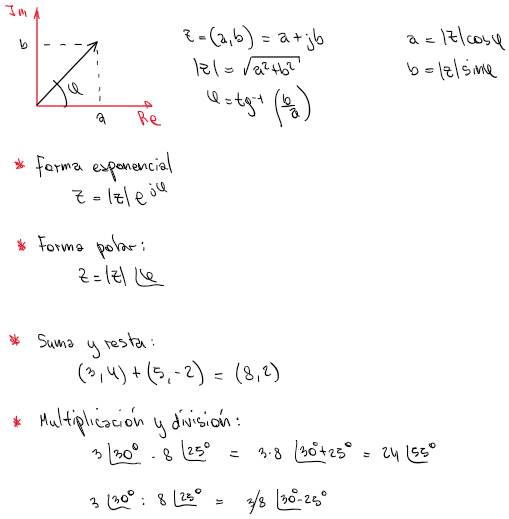 Im
b
φ
a
Re
z = (a,b) = a + jb
|z| = √(a²+b²)
φ = tg⁻¹ (b/a)
a = |z| cosφ
b = |z| sinφ
* Forma exponencial
z = |z| e^jφ
* Forma polar:
z = |z| ∠φ
* Suma y resta:
(3,4) + (5,-2) = (8,2)
* Multiplicación y división:
3 ∠30° · 8 ∠25° = 3·8 ∠30°+25° = 24 ∠55°
3 ∠30° : 8 ∠25° = 3/8 ∠30°-25°